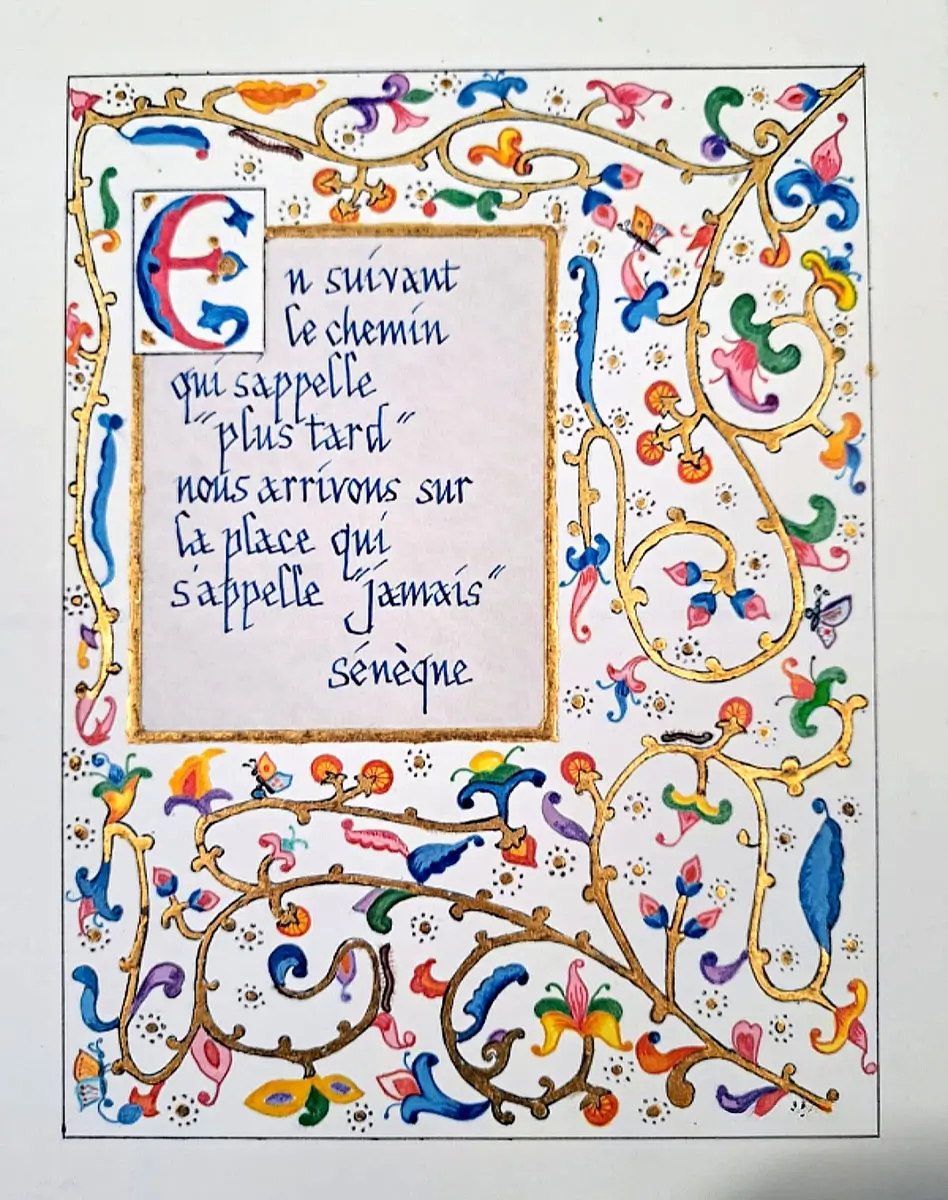 En suivant
le chemin
qui s'appelle
"plus tard"
nous arrivons sur
la place qui
s'appelle "jamais"
sénèque